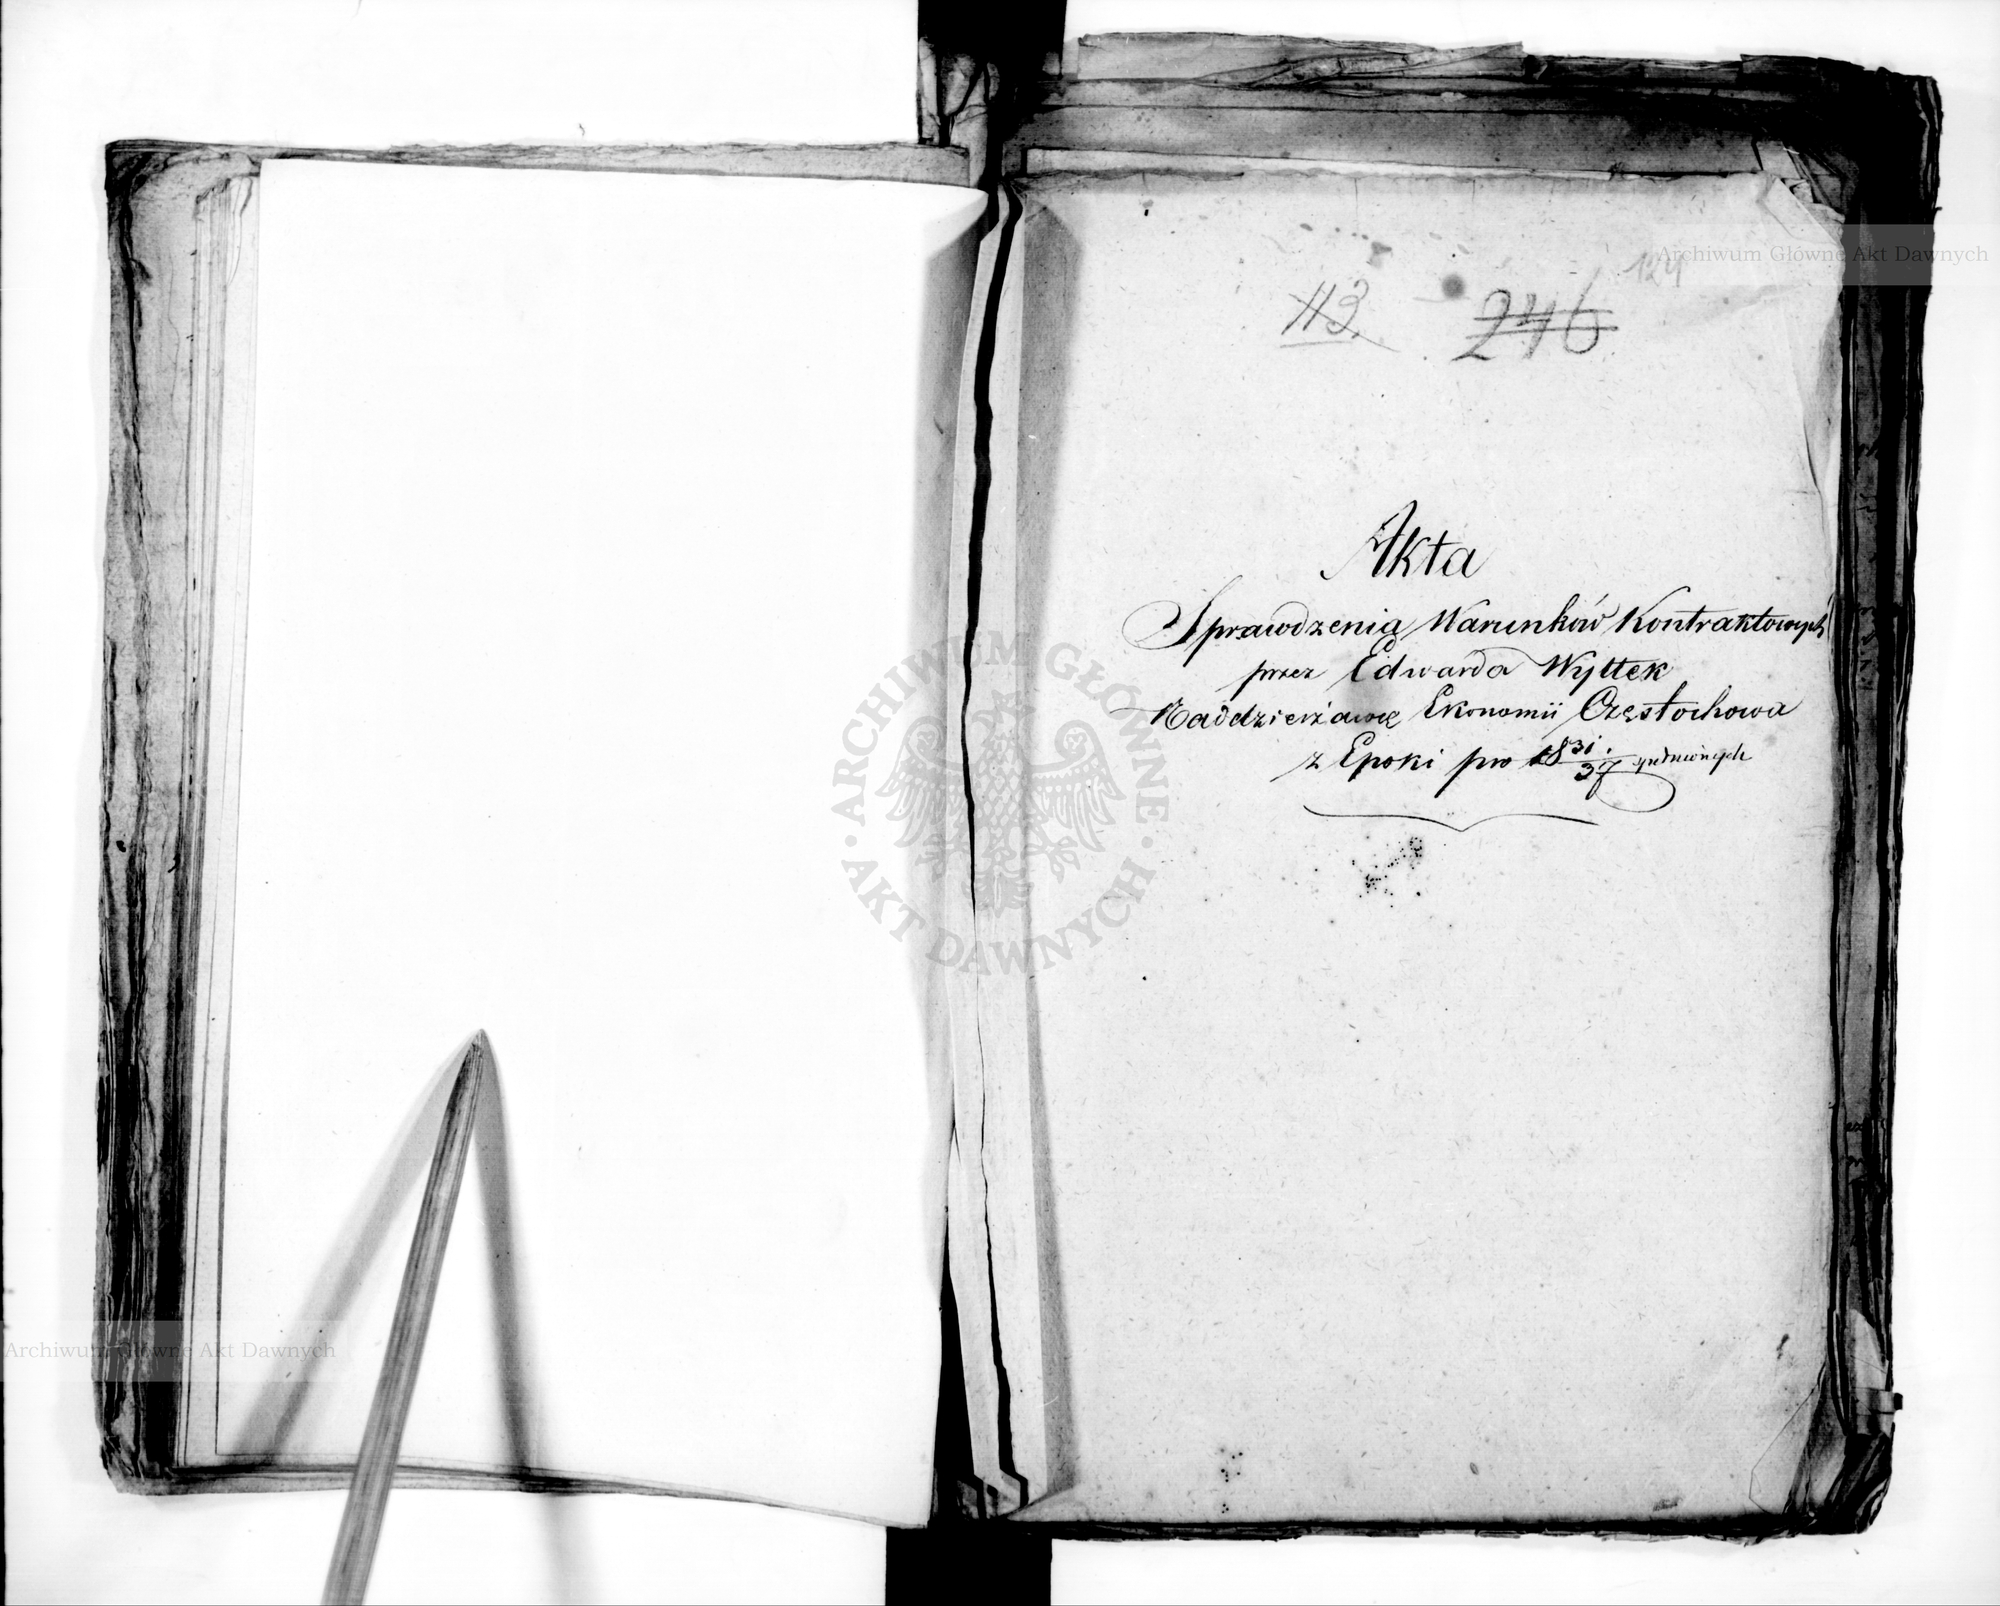 124
113
246
Akta
Sprawdzenia Warunków Kontraktowych
przez Edwarda Wyttek
Naddzierżawcę Ekonomii Częstochowa
z Epoki pro 18 31/37
Archiwum Główne Akt Dawnych
ARCHIWUM GŁÓWNE
· AKT DAWNYCH ·
Archiwum Główne Akt Dawnych